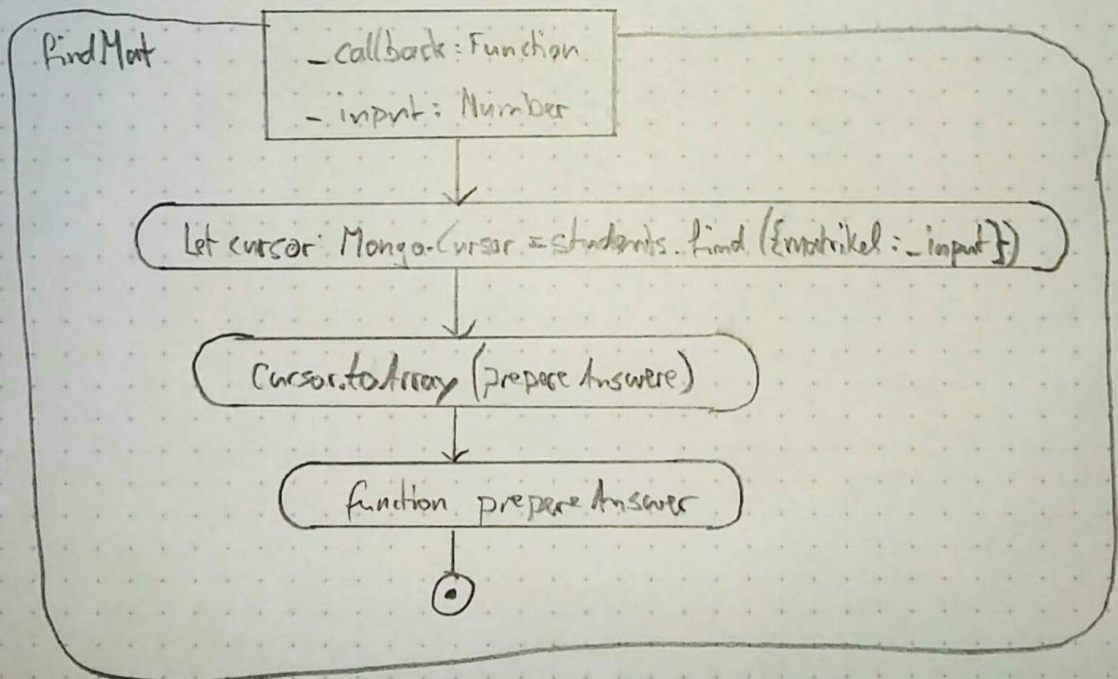 findMat
_callback: Function
_input: Number
Let cursor: Mongo.Cursor = students.find({matrikel:_input})
Cursor.toArray (prepereAnswere)
function prepereAnswer